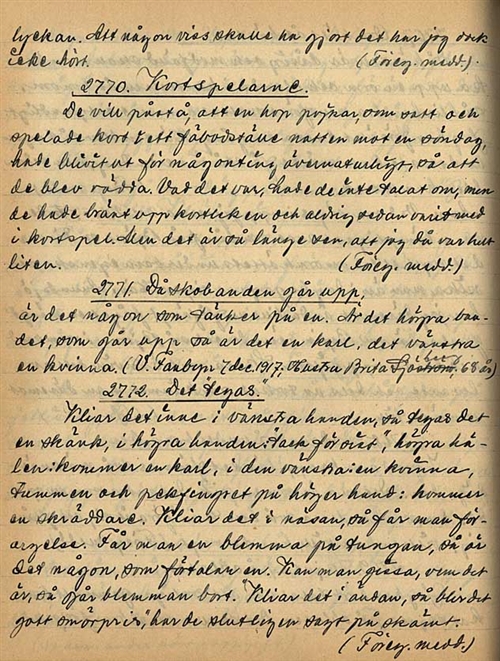 lyckan. Att någon viss skulle ha gjort det har jag dock
icke hört. (Föreg. medd.).
2770. Kortspelarne.
De vill påstå, att en hop pojkar, som satt och
spelade kort i ett fäbodställe natten mot en söndag,
hade blivit ut för någonting övernaturligt, så att
de blev rädda. Vad det var, hade de inte talat om, men
de hade bränt upp kortleken och aldrig sedan varit med
i kortspel. Men det är så länge sen, att jag då var helt
liten. (Föreg. medd.)
2771. Då skobanden går upp,
är det någon som tänker på en. Är det högra ban-
det, som går upp så är det en karl, det vänstra
en kvinna. (V. Fanbyn 7 dec. 1917, Hustru Brita 68 år)
2772. "Det tegas."
Kliar det inne i vänstra handen, så tegas det
en skänk, i högra handen: "tack för sist", högra hä-
len: kommer en karl, i den vänstra: en kvinna,
tummen och pekfingret på höger hand: kommer
en skräddare. Kliar det i näsan, så får man för-
argelse. Får man en blemma på tungan, så är
det någon, som förtalar en. Kan man gissa, vem det
är, så går blemman bort. "Kliar det i ändan, så blir det
gott smörpris", har de slutligen sagt på skämt.
(Föreg. medd.)